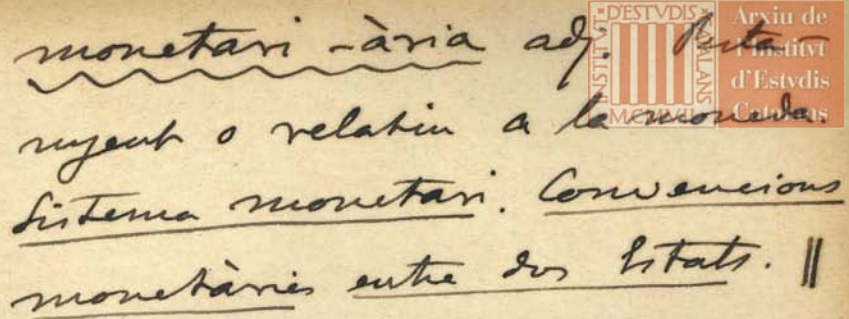 monetari -ària adj. Perta-
nyent o relatiu a la moneda.
Sistema monetari. Convencions
monetàries entre dos Estats. ||
INSTITVT D'ESTVDIS CATALANS
MCMVII
Arxiu de
l'Institvt
d'Estvdis
Catalans